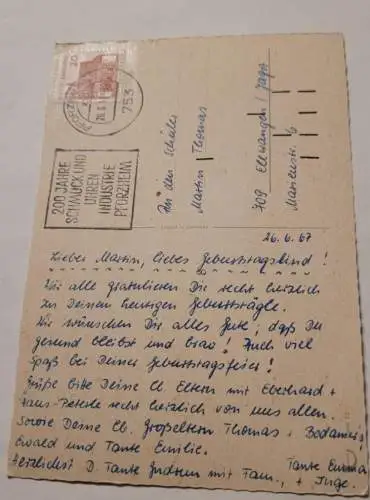 PFORZHEIM
753
200 JAHRE
SCHMUCK UND
UHREN
INDUSTRIE
PFORZHEIM
An den Schüler
Martin Thomas
709 Ellwangen / Jagst
Marienstr. 6
26.6.67
Lieber Martin, liebes Geburtstagskind!
Wir alle gratulieren Dir recht herzlich
zu Deinem heutigen Geburtstägle.
Wir wünschen Dir alles Gute, daß Du
gesund bleibst und brav! Auch viel
Spaß bei Deiner Geburtstagsfeier!
Grüße bitte Deine lb. Eltern mit Eberhard +
Hans-Peterle recht herzlich von uns allen.
Sowie Deine lb. Großeltern Thomas +
Ewald und Tante Emilie. Tante Emma
Herzlichst D. Tante mit Fam., + Inge.